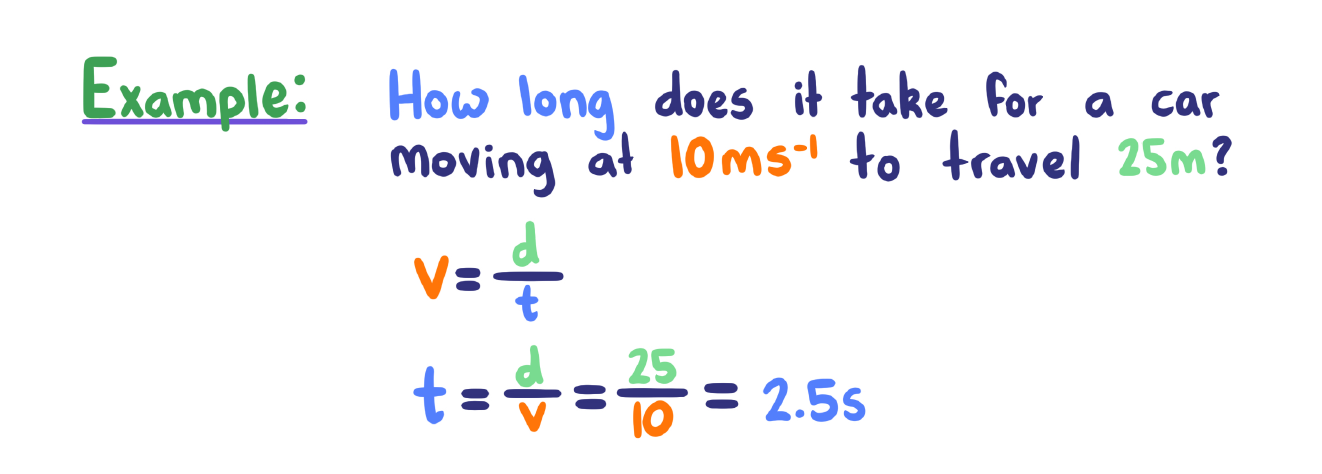 Example: How long does it take for a car
moving at 10ms⁻¹ to travel 25m?
v = d/t
t = d/v = 25/10 = 2.5s